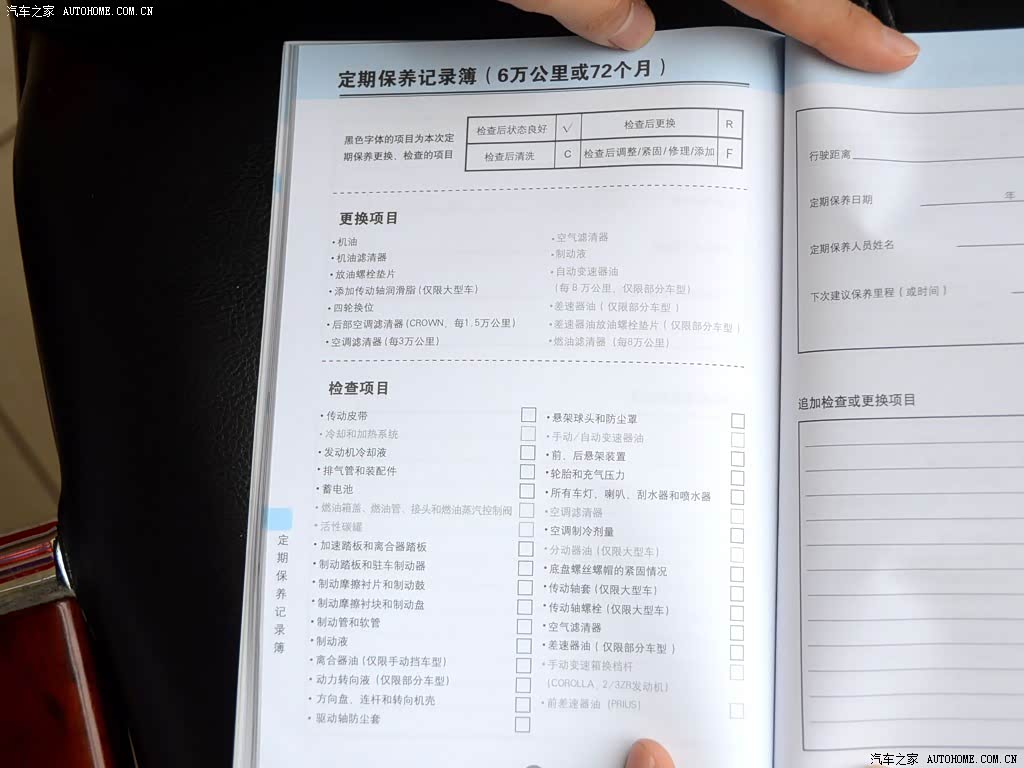 汽车之家 AUTOHOME.COM.CN
定期保养记录簿（6万公里或72个月）
黑色字体的项目为本次定
期保养更换、检查的项目
检查后状态良好 √ 检查后更换 R
检查后清洗 C 检查后调整/紧固/修理/添加 F
更换项目
•机油
•机油滤清器
•放油螺栓垫片
•添加传动轴润滑脂(仅限大型车)
•四轮换位
•后部空调滤清器(CROWN、每1.5万公里)
•空调滤清器(每3万公里)
•空气滤清器
•制动液
•自动变速器油
(每8万公里，仅限部分车型)
•差速器油（仅限部分车型）
•差速器油放油螺栓垫片（仅限部分车型）
•燃油滤清器（每8万公里）
检查项目
•传动皮带
•冷却和加热系统
•发动机冷却液
•排气管和装配件
•蓄电池
•燃油箱盖、燃油管、接头和燃油蒸汽控制阀
•活性碳罐
•加速踏板和离合器踏板
•制动踏板和驻车制动器
•制动摩擦衬片和制动鼓
•制动摩擦衬块和制动盘
•制动管和软管
•制动液
•离合器油(仅限手动挡车型)
•动力转向液（仅限部分车型）
•方向盘、连杆和转向机壳
•驱动轴防尘套
•悬架球头和防尘罩
•手动/自动变速器油
•前、后悬架装置
•轮胎和充气压力
•所有车灯、喇叭、刮水器和喷水器
•空调滤清器
•空调制冷剂量
•分动器油(仅限大型车)
•底盘螺丝螺帽的紧固情况
•传动轴套(仅限大型车)
•传动轴螺栓(仅限大型车)
•空气滤清器
•差速器油（仅限部分车型）
•手动变速箱换档杆
(COROLLA、2/3ZR发动机)
•前差速器油 (PRIUS)
定期保养记录簿
行驶距离
定期保养日期 年
定期保养人员姓名
下次建议保养里程（或时间）
追加检查或更换项目
汽车之家 AUTOHOME.COM.CN